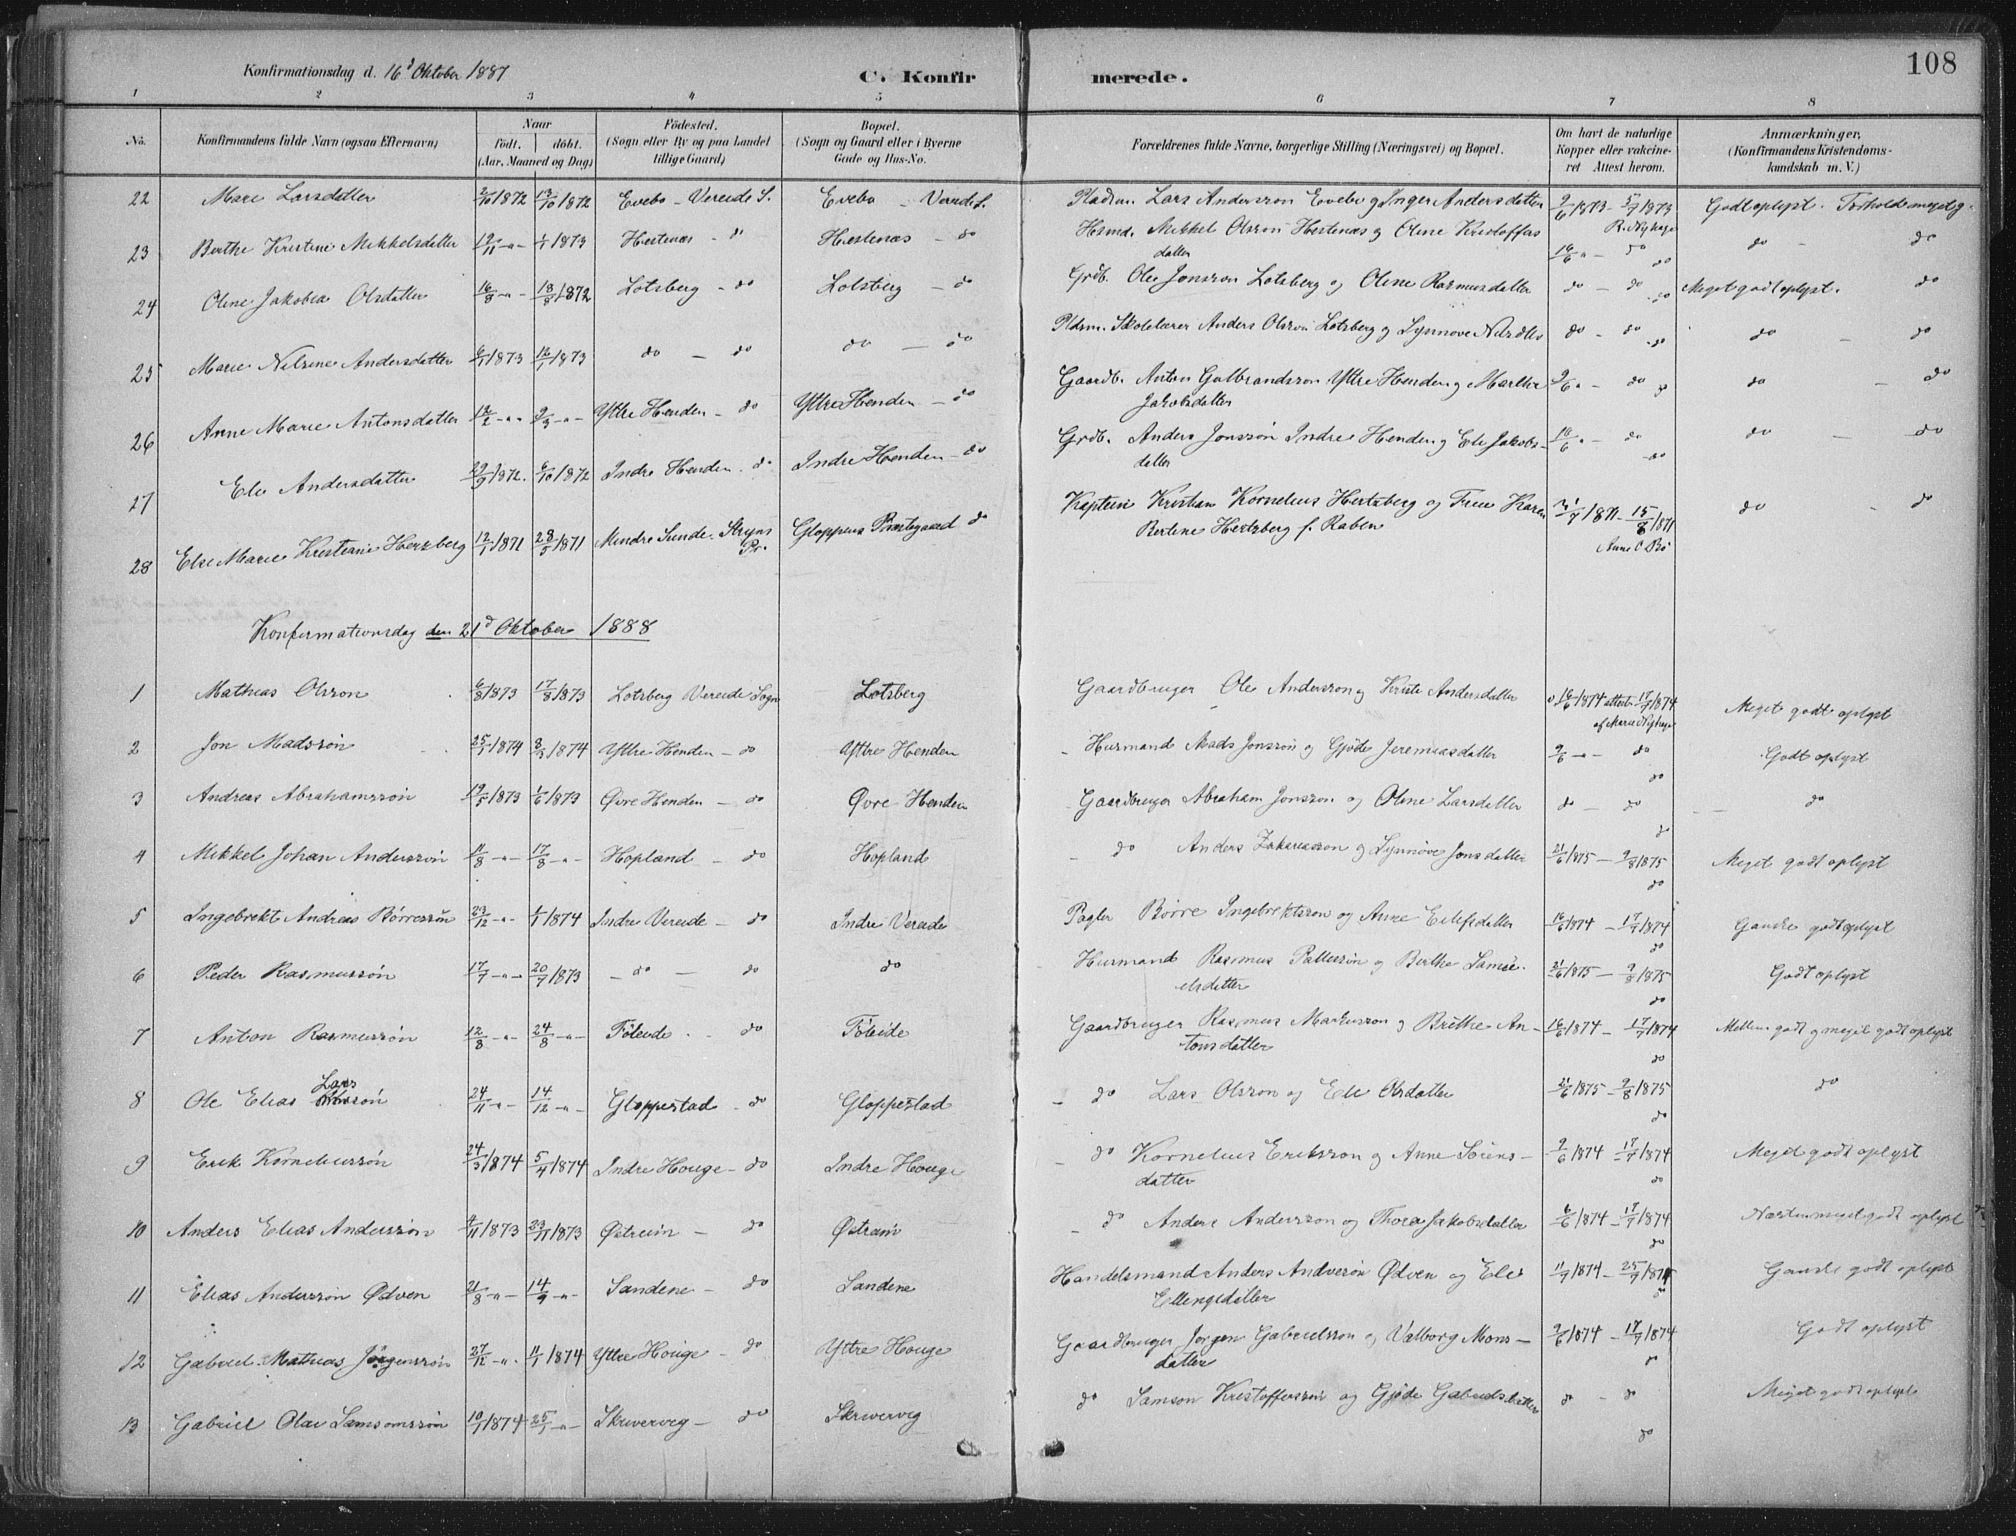 108
Konfirmationsdag d. 16d Oktober 1887 C. Konfirmerede.
1 2 3 4 5 6 7 8
No. Konfirmandens fulde Navn (ogsaa Efternavn) Naar födt. döbt. (Aar, Maaned og Dag) Födested. (Sogn eller By og paa Landet tillige Gaard) Bopæl. (Sogn og Gaard eller i Byerne Gade og Hus-No. Forældrenes fulde Navne, borgerlige Stilling (Næringsvei) og Bopæl. Om havt de naturlige Kopper eller vakcineret Attest herom. Anmærkninger, (Konfirmandens Kristendomskundskab m. V.)
22 Mari Larsdatter 2/10 1872 13/10 1872 Evebø - Vereide S. Evebø - Vereide S. Pladsm. Lars Anderssøn Evebø og Inger Andersdatter 9/6 1873 - 5/7 1873 R. Nyhage Godt oplyst. Forhold meget g.
23 Berthe Kristine Mikkelsdatter 19/11 -"- 1/1 1873 Hestenæs - do Hestenæs - do Husmd. Mikkel Olsson Hestenæs og Oline Kristoffersdatter 16/6 " - do do do - do
24 Oline Jakobea Olsdatter 16/8 -"- 18/8 1872 Lotsberg - do Lotsberg - do Grdb. Ole Jonssøn Lotsberg og Oline Rasmusdatter do - do do Meget godt oplyst. do
25 Marie Nilsine Andersdatter 6/1 1873 12/1 1873 do - do do - do Pldsm. Skolelærer Anders Olsson Lotsberg og Synnøve Nilsdtr do - do do do - do
26 Anne Marie Antonsdatter 12/2 -"- 9/3 -"- Yttre Henden - do Yttre Henden - do Gaardb. Anton Gulbrandssøn Yttre Henden og Marthe Jakobsdatter 9/6 " - do do do - do
27 Eli Andersdatter 29/9 1872. 6/10 1872 Indre Henden - do Indre Henden - do Grdb. Anders Jonssøn Indre Henden og Eli Jakobsdatter 16/6 " - do do do - do
28 Else Marie Kristiane Herzberg 12/1 1871 28/5 1871 Mindre Sunde. Stryns Pr. Gloppens Præstegaard do Kaptein Kristian Kornelius Hertzberg og Frue Karen Bertine Hertzberg f. Raben 1871 - 15/8 1871 Anne C Bø do - do
Konfirmationsdag den 21d Oktober 1888
1 Mathias Olsson 6/8 1873 17/8 1873 Lotsberg Vereide Sogn Lotsberg Gaardbruger Ole Anderssøn og Kristi Andersdatter 16/6 1874 attest 17/7 1874 af Marie Nyhage Meget godt oplyst
2 Jon Madssøn 25/1 1874 8/3 1874 Yttre Henden - do Yttre Henden - Husmand Mads Jonssøn og Gjøde Jeremiasdatter 9/6 -"- do do Godt oplyst
3 Andreas Abrahamssøn 19/5 1873 1/6 1873 Øvre Henden - do Øvre Henden - Gaardbruger Abraham Jonsson og Oline Larsdatter do - do do - do
4 Mikkel Johan Anderssøn 11/8 -"- 17/8 -"- Hopland - do Hopland - do Anders Zakariasson og Synnøve Jonsdatter 21/6 1875 - 9/8 1875 do Meget godt oplyst
5 Ingebrekt Andreas Børressøn 23/12 -"- 1/1 1874 Indre Vereide - do Indre Vereide Pagler Børre Ingebrektsson og Anne Eilifsdatter 16/6 1874 - 17/7 1874 do Ganske godt oplyst
6 Peder Rasmussøn 17/7 -"- 20/7 1873 - do - do do Husmand Rasmus Pallessøn og Berthe Samuelsdatter 21/6 1875 - 9/8 1875 do Godt oplyst
7 Anton Rasmussøn 12/8 -"- 24/8 -"- Føleide - do Føleide Gaardbruger Rasmus Markusson og Brithe Antonsdatter 16/6 1874 - 17/7 1874 do Mellem godt og meget godt oplyst
8 Ole Elias Larssøn 24/11 -"- 14/12 -"- Gloppestad - do Gloppestad - do Lars Olsson og Eli Olsdatter 21/6 1875 - 9/8 1875 do do
9 Erik Korneliussøn 24/3 1874 5/4 1874 Indre Houge - do Indre Houge - do Kornelius Eriksson og Anne Sørensdatter 9/6 1874 - 17/7 1874 do Meget godt oplyst
10 Anders Elias Anderssøn 4/11 1873 23/11 1873 Østreim - do Østreim - do Anders Anderssøn og Thora Jakobsdatter 6/6 1874 - 17/7 1874 do Næsten meget godt oplyst
11 Elias Anderssøn Ødven 21/8 -"- 14/9 -"- Sandene - do Sandene Handelsmand Anders Andersøn Ødven og Eli Ellingsdatter 11/7 1874 - 25/7 1874 do Ganske godt oplyst
12 Gabriel Mathias Jørgenssøn 27/12 -"- 11/1 1874 Yttre Houge - do Yttre Houge Gaardbruger Jørgen Gabrielsson og Valborg Monsdatter 9/6 1874 - 17/7 1874 do Godt oplyst
13 Gabriel Olai Samsonssøn 10/1 1874 25/1 -"- Skrivervig - do Skrivervig do Samson Kristofferssøn og Gjøde Gabrielsdatter do - do do Meget godt oplyst